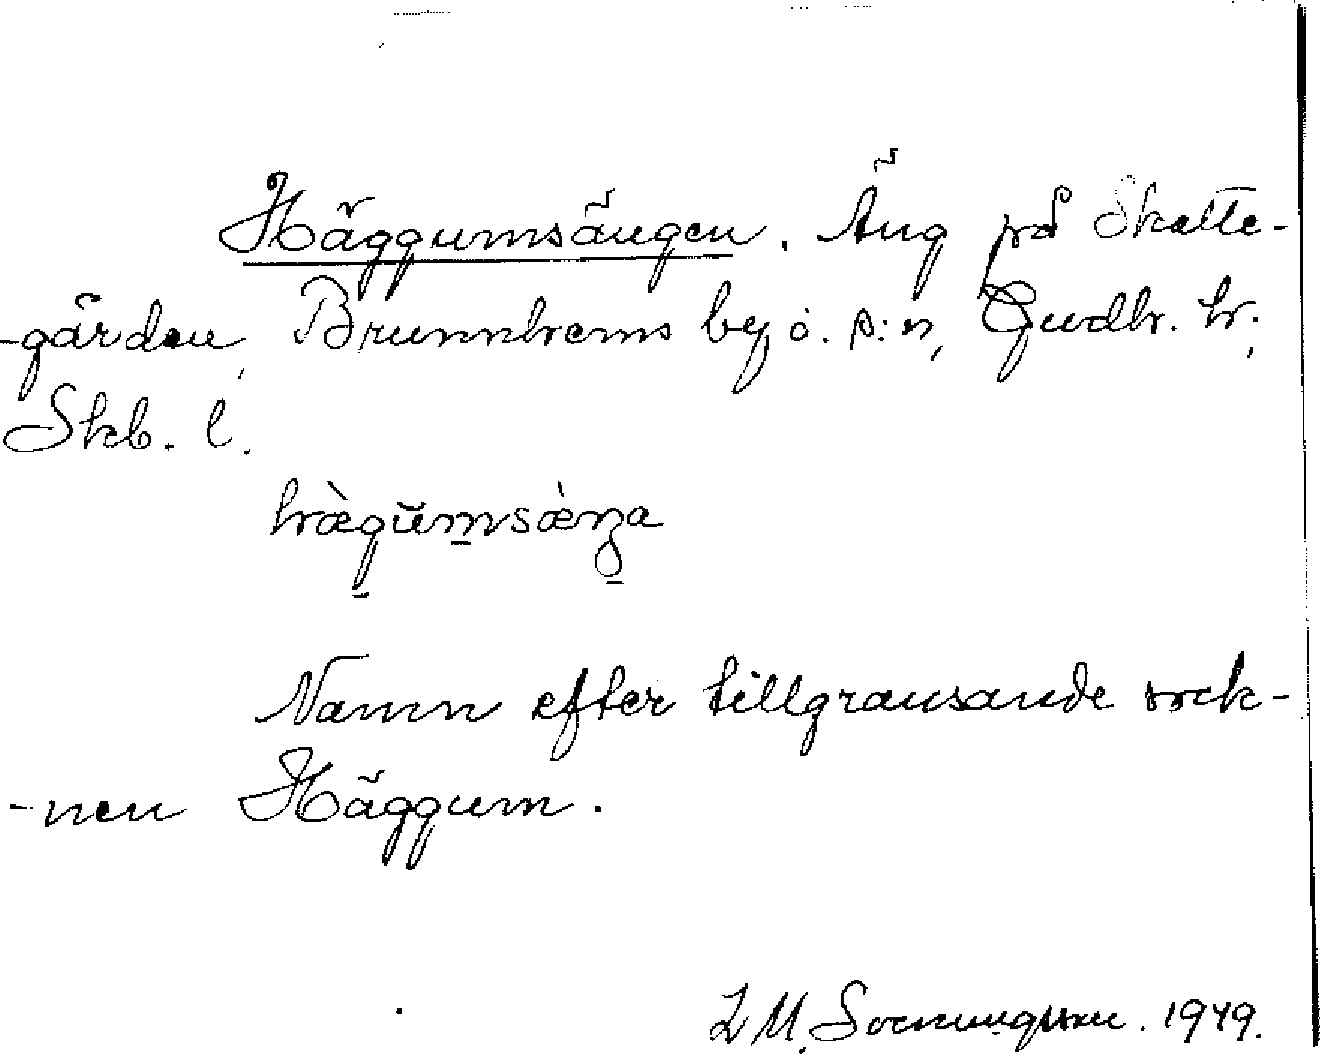 Häggumsängen. Äng på Skatte-
-gården, Brunnhems by o. s:n, Gudh. hr.,
Skb. l.
hæ̀gŭmsæ̀ŋa
Namn efter tillgränsande sock-
-nen Häggum.
1949.